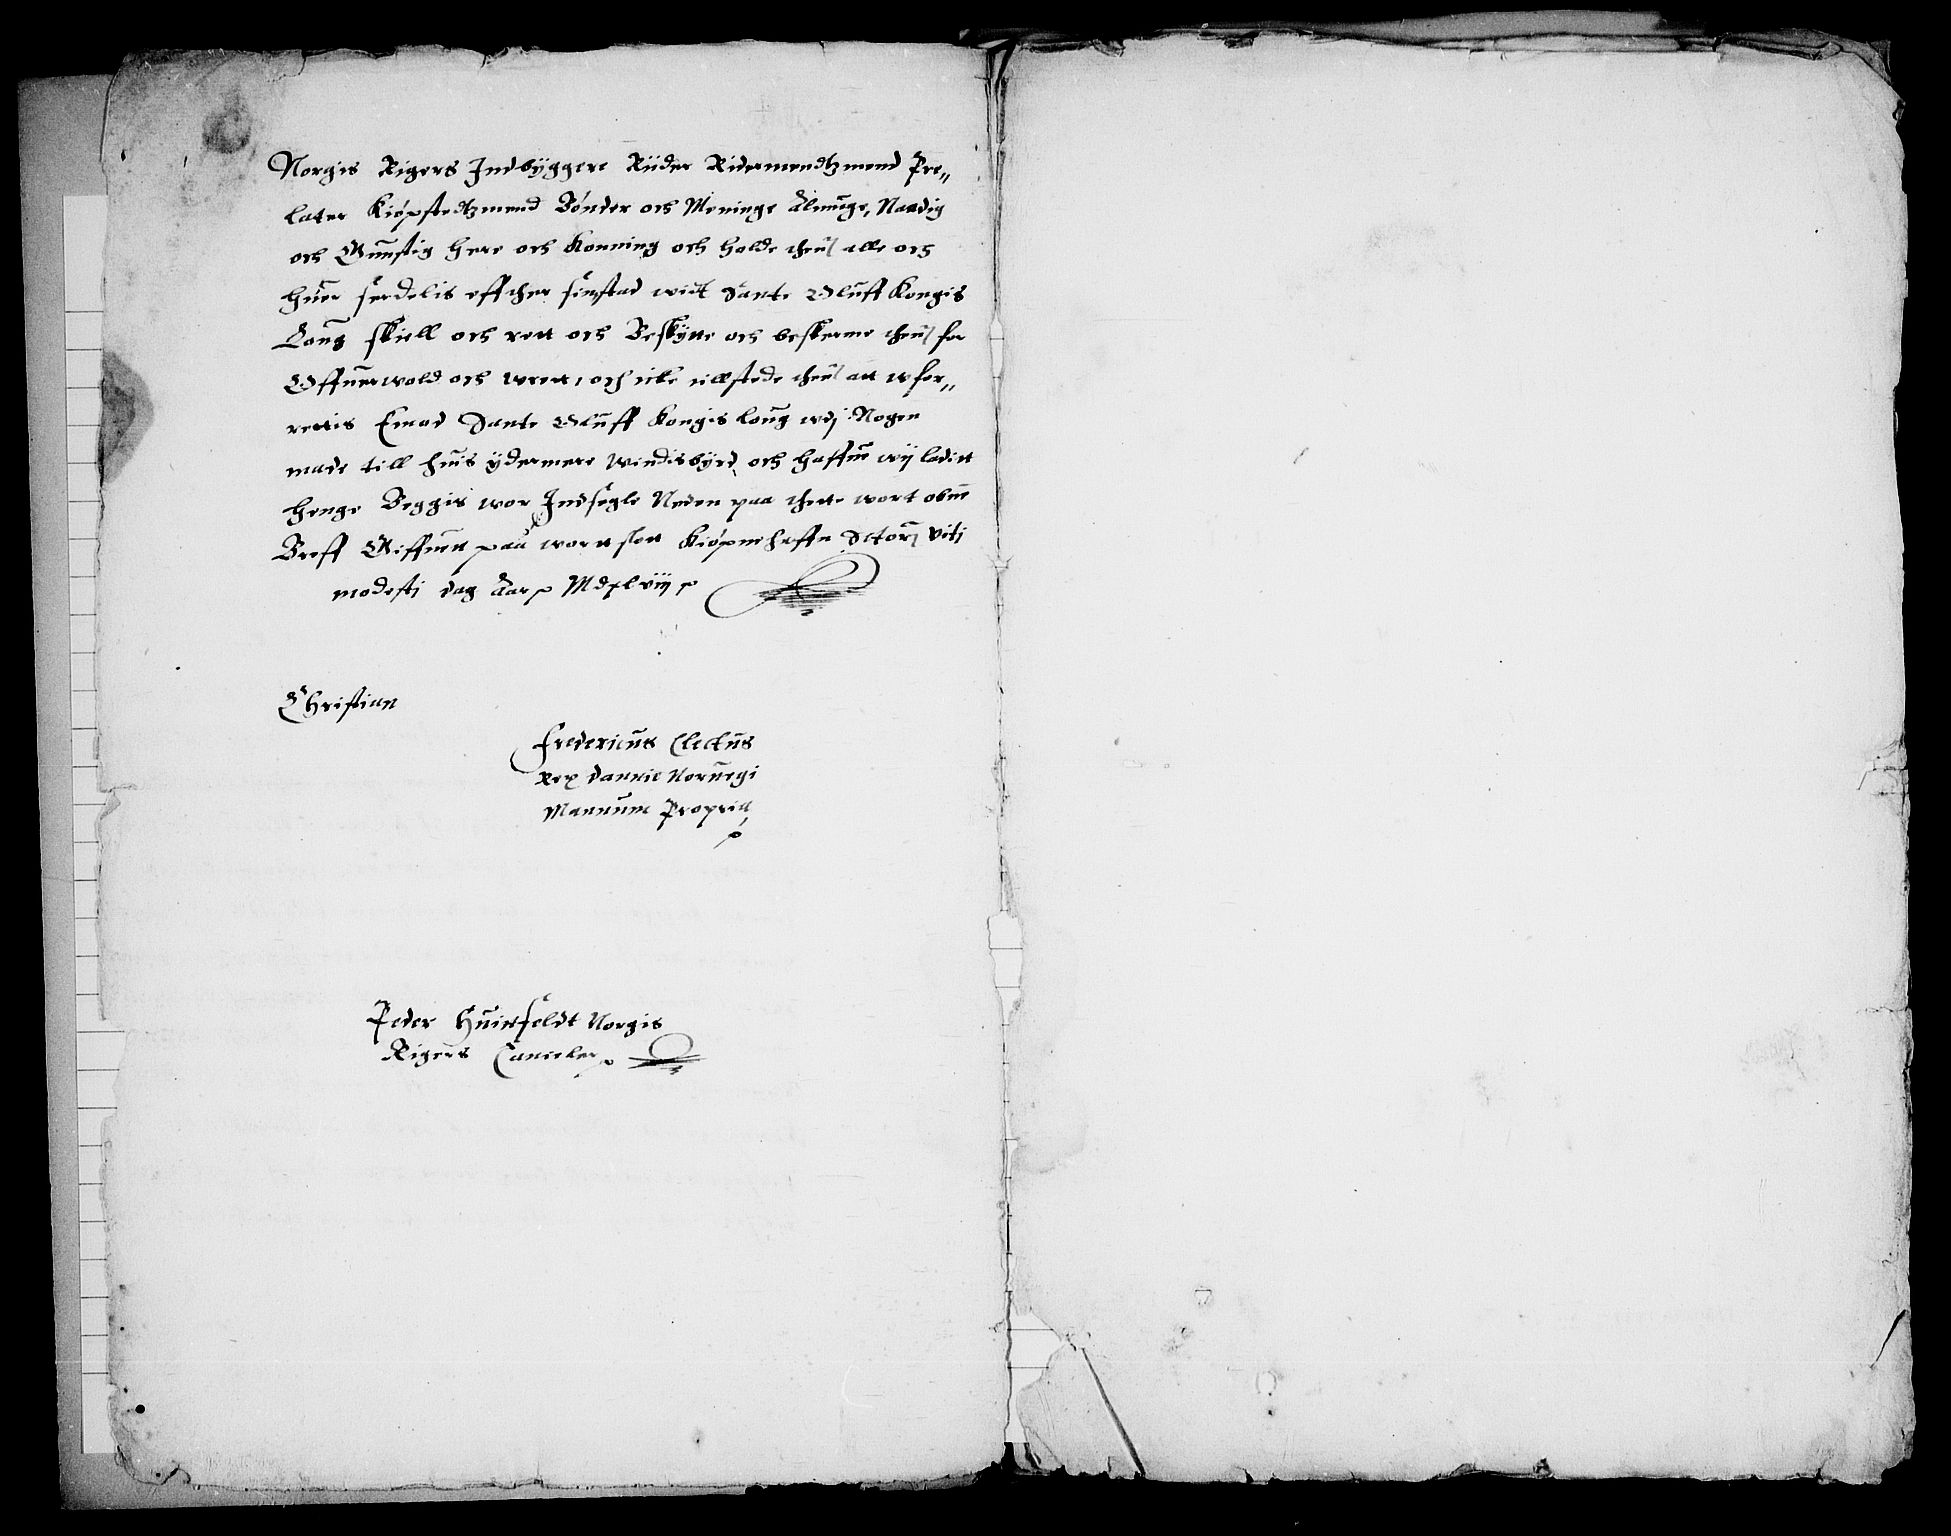 Norgis Rigers Indbÿggere Riider Ridermendtzmend Pre„
later Kiøpstedtzmend Bønder och Meninge Almuge, Naadig
och Gunstig Here och Konning och holde them alle och
huer serdelis effther sin stad widt Sante Oluff Kongis
Loug skiell och rett och Beskÿtte och beskerme them for
Offuerwold och wrett, och icke tillstede them att wfor„
rettis Emod Sante Oluff Kongis loug wdj Nogen
made till huis ÿdermere Windisbÿrd, och haffue wij laditt
henge Beggis wor Indsegle Neden paa thette wort obne
Breff Giffuett paa wortt slott Kiøpnehaffn Sctorum viti
modesti dag Aar MDxlviij
Christian
Fredericus Electus
Rex Dannie Noruegi
Mannum Propria
Peder Huitfeldt Norgis
Rigers Canceler